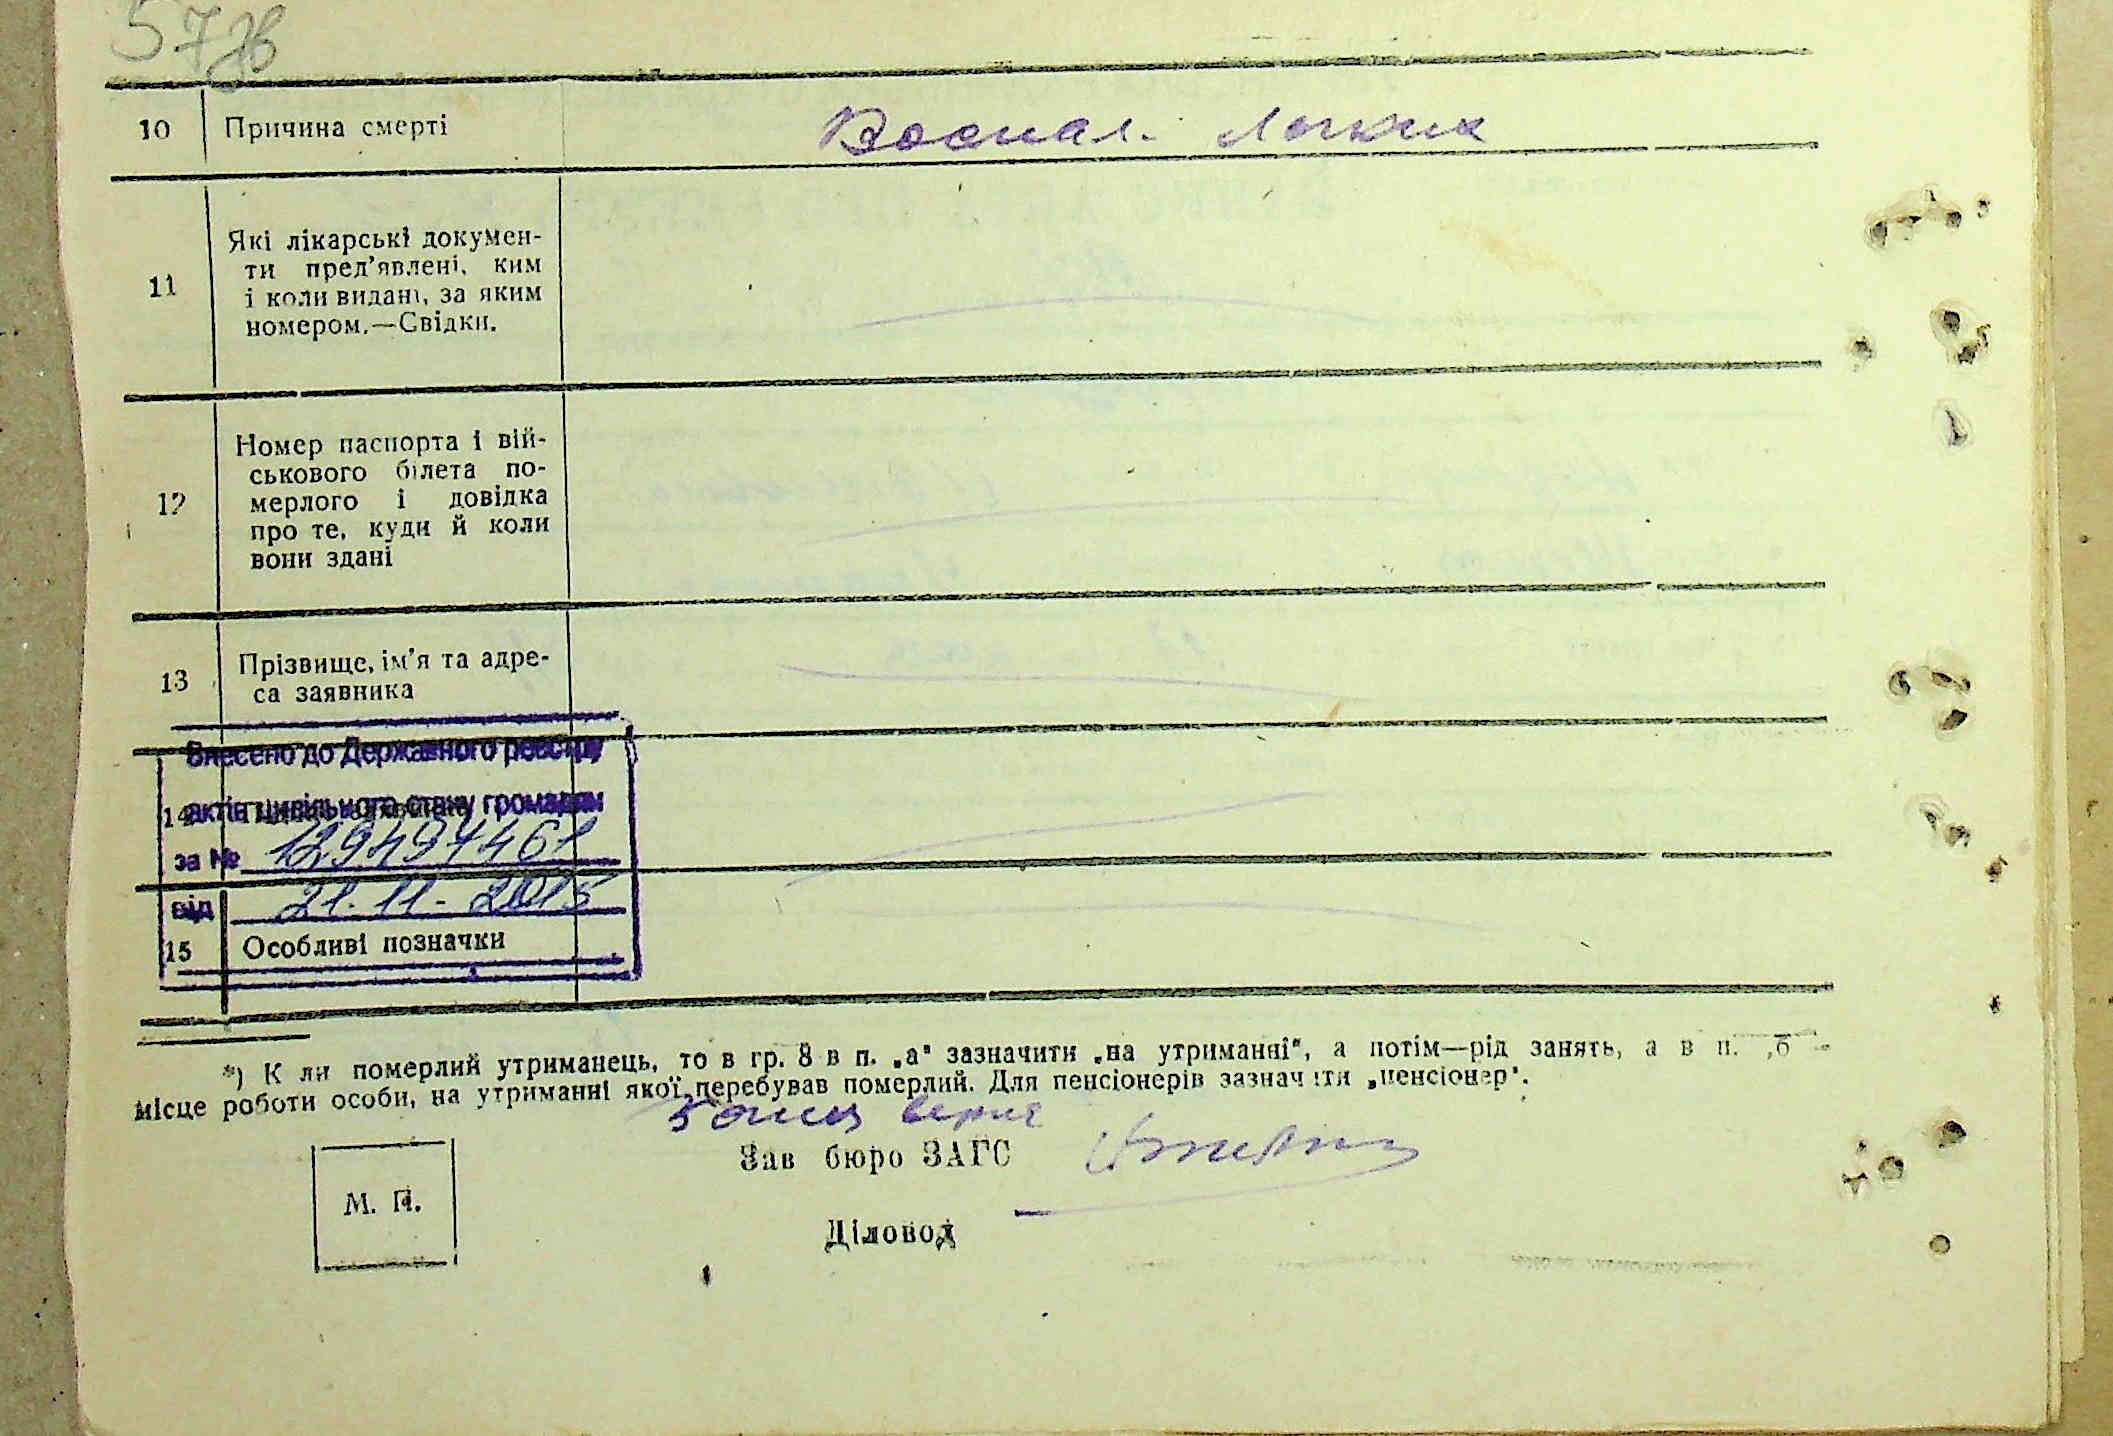 57зв
10 Причина смерті Воспал. легких
11 Які лікарські докумен-
ти пред'явлені, ким
і коли видані, за яким
номером.—Свідки.
12 Номер паспорта і вій-
ськового білета по-
мерлого і довідка
про те, куди й коли
вони здані
13 Прізвище, ім'я та адре-
са заявника
Внесено до Державного реєстру
14
актів цивільного стану громадян
за № 129494461
від 21.11.2015
15 Особливі позначки
*) К ли померлий утриманець, то в гр. 8 в п. „а" зазначити „на утриманні", а потім—рід занять, а в п. „б"—
місце роботи особи, на утриманні якої перебував померлий. Для пенсіонерів зазначити „пенсіонер".
Копия верна
Зав бюро ЗАГС
М. П.
Діловод